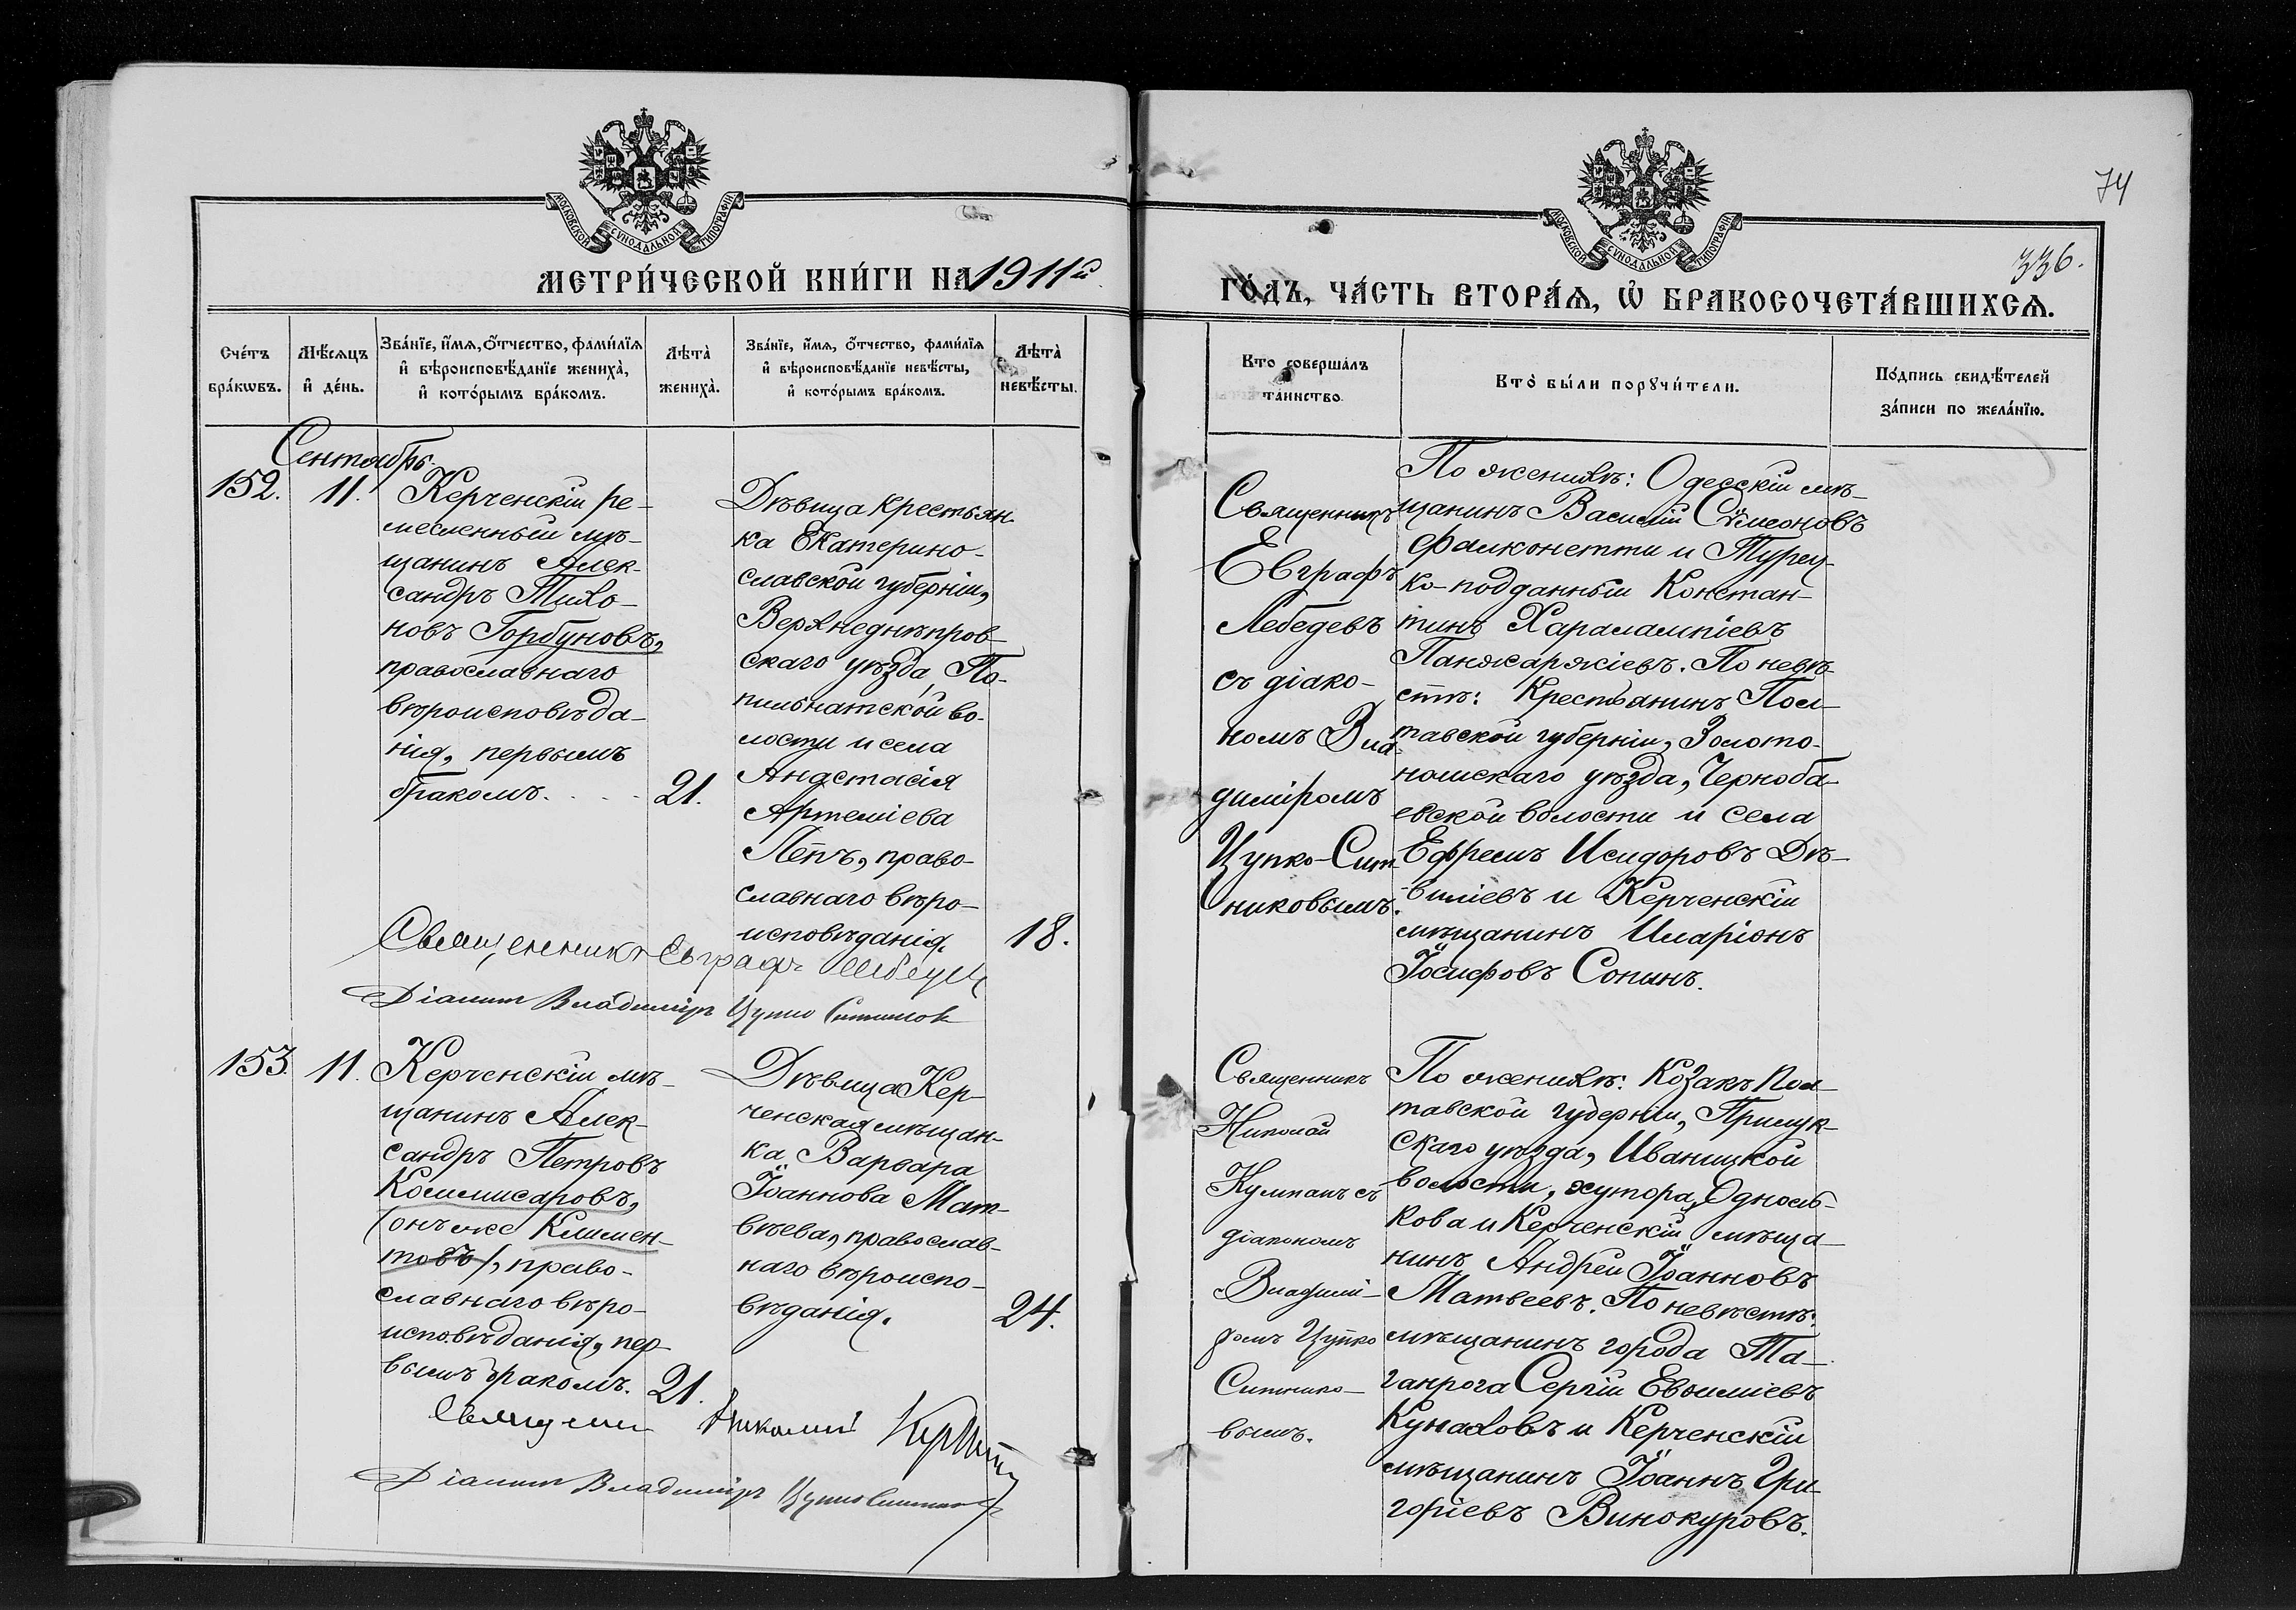 МОСКОВСКОЙ СѴНОДАЛЬНОЙ ТИПОГРАФІИ
МЕТРИ́ЧЕСКОЙ КНИ́ГИ НА 1911й
Сче́тъ бра́кѡвъ.
Мѣ́сяцъ и҆ де́нь.
Зва́нїе, и҆́мя, ѻ҆́тчество, фами́лїя и҆ вѣроисповѣ́данїе жениха̀, и҆ кото́рымъ бра́комъ.
Лѣта̀ жениха̀.
Зва́нїе, и҆́мя, ѻ҆́тчество, фами́лїя и҆ вѣроисповѣ́данїе невѣ́сты, и҆ кото́рымъ бра́комъ.
Лѣта̀ невѣ́сты.
Сентябрь.
152.
11.
Керченскій ре-
месленный мѣ-
щанинъ Алек-
сандръ Тихо-
новъ Горбуновъ,
православнаго
вѣроисповѣда-
нія, первымъ
бракомъ.
21.
Дѣвица крестьян-
ка Екатерино-
славской губерніи,
Верхнеднѣпров-
скаго уѣзда, По-
пильнатской во-
лости и села
Анастасія
Артеміева
Лепъ, право-
славнаго вѣро-
исповѣданія.
18.
Священникъ Евграфъ Лебедевъ
Діаконъ Владиміръ Цупко Ситников
153.
11.
Керченскій мѣ-
щанинъ Алек-
сандръ Петровъ
Коммисаровъ,
(онъ же Климен-
товъ), право-
славнаго вѣро-
исповѣданія, пер-
вымъ бракомъ.
21.
Дѣвица Кер-
ченская мѣщан-
ка Варвара
Іоаннова Мат-
вѣева, православ-
наго вѣроиспо-
вѣданія.
24.
Священник Николай Курпанъ
Діаконъ Владиміръ Цупко Ситников
74
МОСКОВСКОЙ СѴНОДАЛЬНОЙ ТИПОГРАФІИ
336.
ГО́ДЪ, ЧА́СТЬ ВТОРА́Ѧ, Ѡ҆ БРАКОСОЧЕТА́ВШИХСѦ.
Кто̀ соверша́лъ та́инство.
Кто̀ бы́ли порꙋчи́тели.
По́дпись свидѣ́телей за́писи по жела́нїю.
Священникъ
Евграфъ
Лебедевъ
съ діако-
номъ Вла-
диміромъ
Цупко-Сит-
никовымъ.
По женихѣ: Одесскій мѣ-
щанинъ Василій Сѵмеоновъ
Фалконетти и Турец-
ко-подданный Констан-
тинъ Харалампіевъ
Панжаржіевъ. По невѣ-
стѣ: Крестьянинъ Пол-
тавской губерніи, Золото-
ношскаго уѣзда, Черноба-
евской волости и села
Ефремъ Исидоровъ Дѣ-
виліевъ и Керченскій
мѣщанинъ Иларіонъ
Іосифовъ Сопинъ.
Священникъ
Николай
Курпанъ съ
діакономъ
Владимі-
ромъ Цупко
Ситнико-
вымъ.
По женихѣ: Козакъ Пол-
тавской губерніи, Прилук-
скаго уѣзда, Иваницкой
волости, хутора, Одноль-
кова и Керченскій мѣща-
нинъ Андрей Іоанновъ
Матвеевъ. По невѣстѣ:
мѣщанинъ города Та-
ганрога Сергій Евѳиміевъ
Кунаховъ и Керченскій
мѣщанинъ Іоаннъ Гри-
горіевъ Винокуровъ.